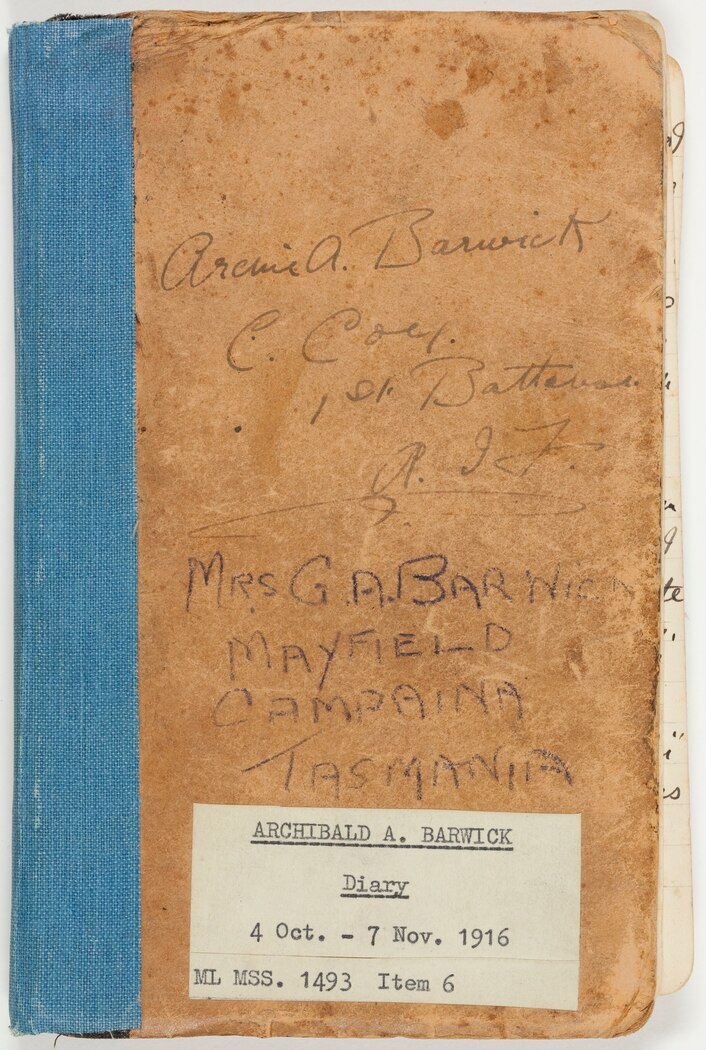 Archie A. Barwick
C. Coy.
1st Battalion
A. I. F.
MRS G.A. BARWICK
MAYFIELD
CAMPAINA
TASMANIA
ARCHIBALD A. BARWICK
Diary
4 Oct. - 7 Nov. 1916
ML MSS. 1493 Item 6